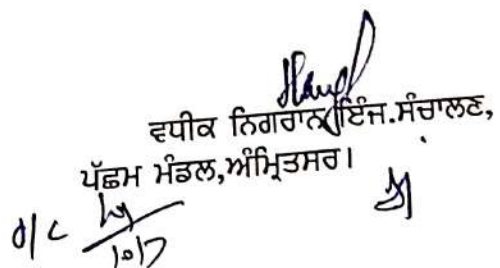 ਵਧੀਕ ਨਿਗਰਾਨ ਇੰਜ.ਸੰਚਾਲਣ,
ਪੱਛਮ ਮੰਡਲ,ਅੰਮ੍ਰਿਤਸਰ।
o/c
10/7